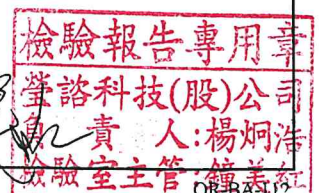 檢驗報告專用章
瑩諮科技(股)公司
責 人:楊炯浩
檢驗室主管:鐘美紅